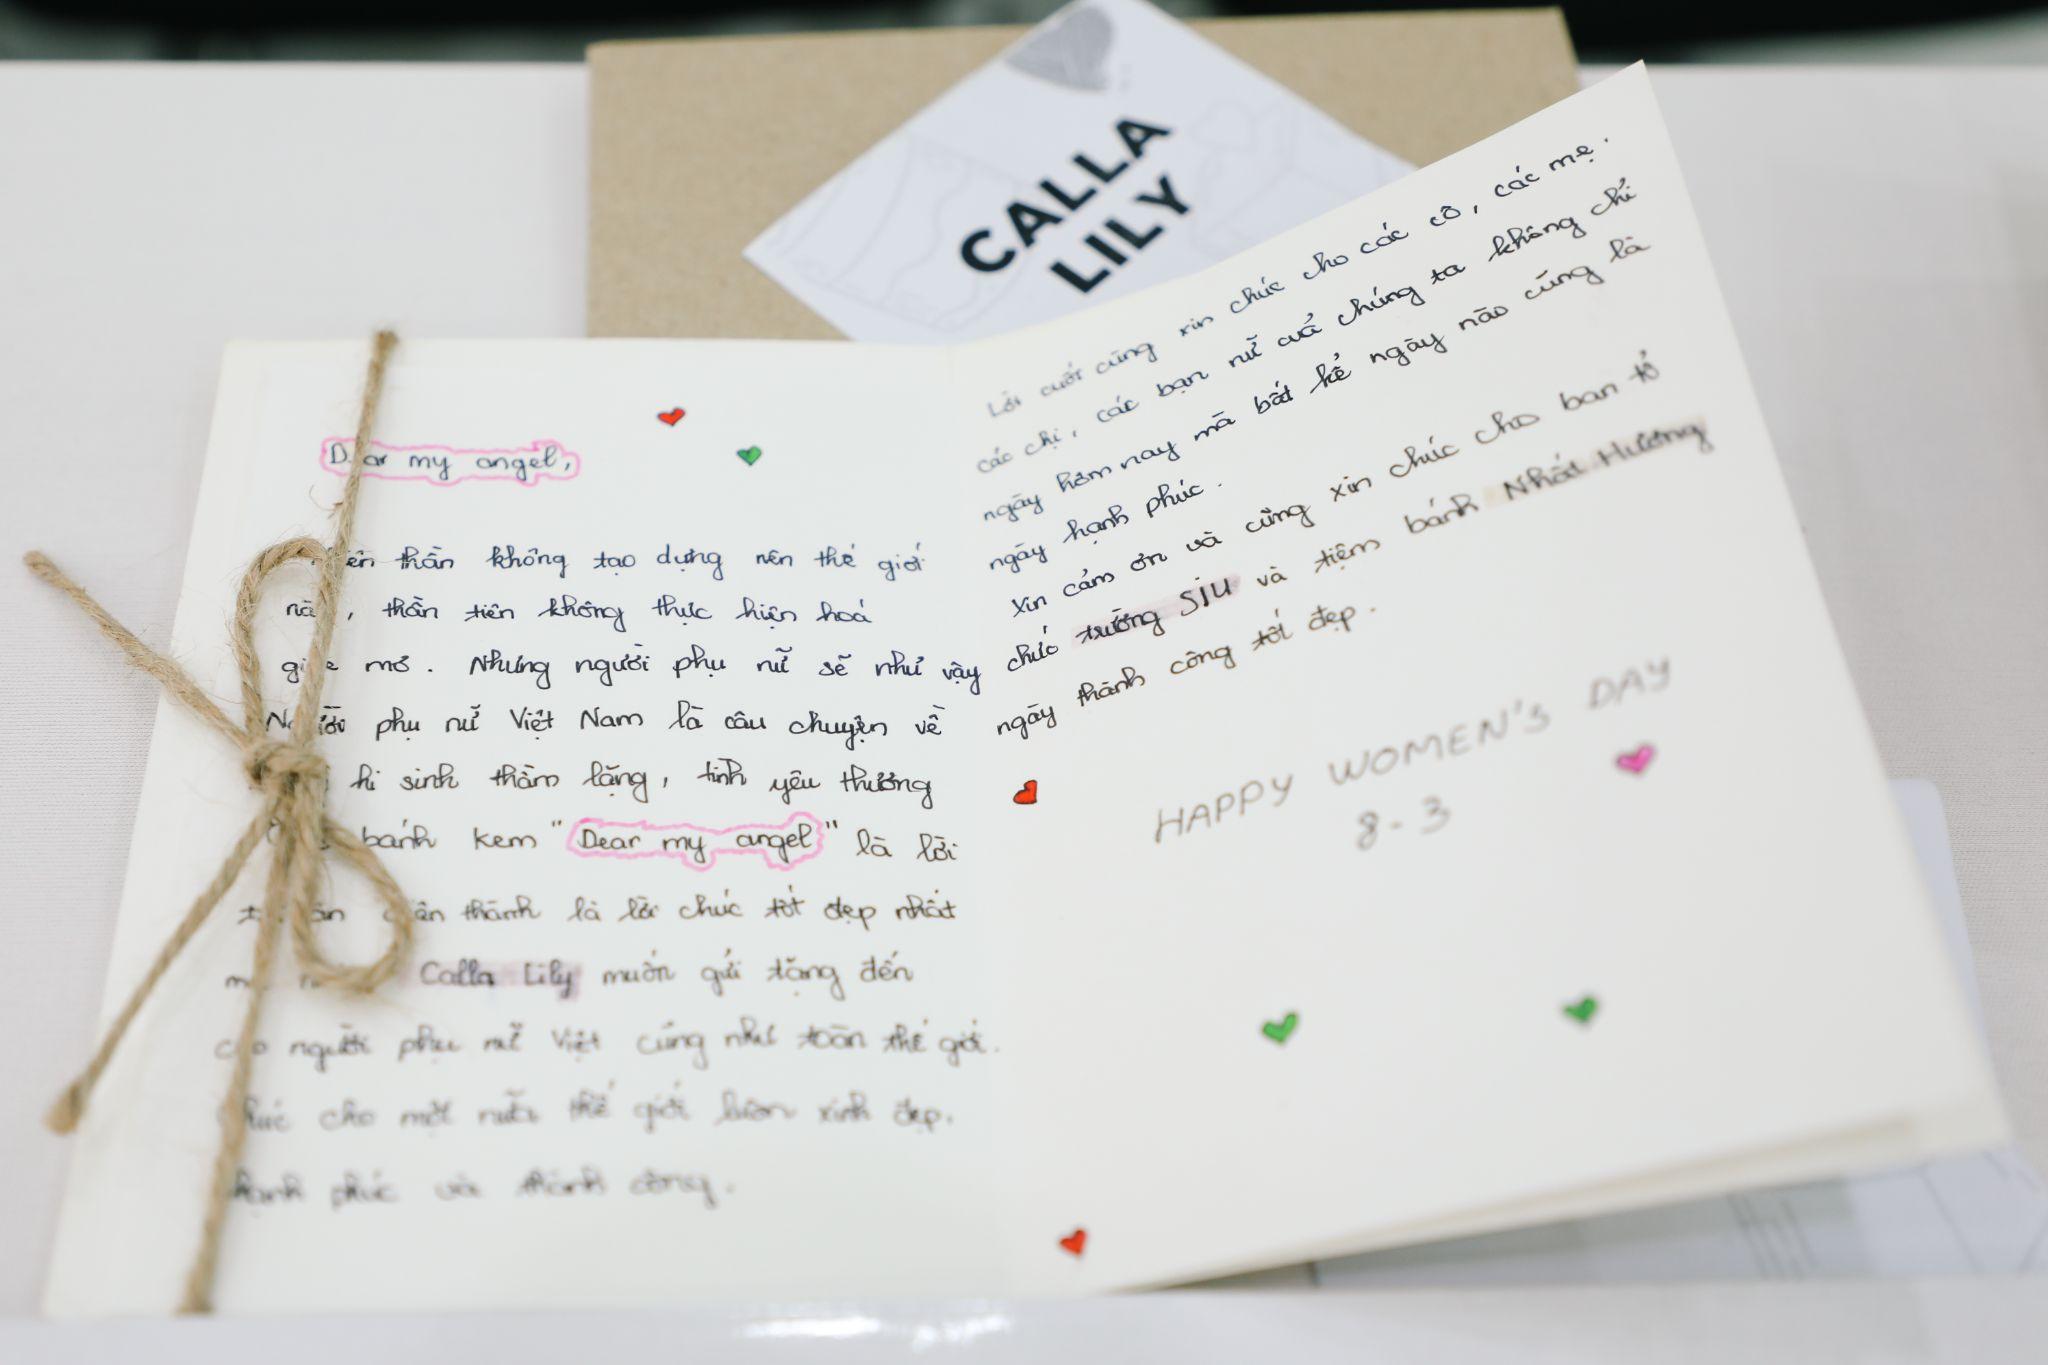 CALLA
LILY
Dear my angel,
thần không tạo dựng nên thế giới
, thần tiên không thực hiện hoá
mơ. Nhưng người phụ nữ sẽ như vậy
Người phụ nữ Việt Nam là câu chuyện về
hi sinh thầm lặng, tình yêu thương
bánh kem "Dear my angel" là lời
chân thành là lời chúc tốt đẹp nhất
Calla Lily muốn gửi tặng đến
cho người phụ nữ Việt cũng như toàn thế giới.
chúc cho một nửa thế giới luôn xinh đẹp.
hạnh phúc và thành công.
Lời cuối cùng xin chúc cho các cô, các mẹ.
các chị, các bạn nữ cuả chúng ta không chỉ
ngày hôm nay mà bất kể ngày nào cũng là
ngày hạnh phúc.
Xin cảm ơn và cũng xin chúc cho ban tổ
chức trường SIU và tiệm bánh Nhất Hương
ngày thành công tốt đẹp.
HAPPY WOMEN'S DAY
8-3